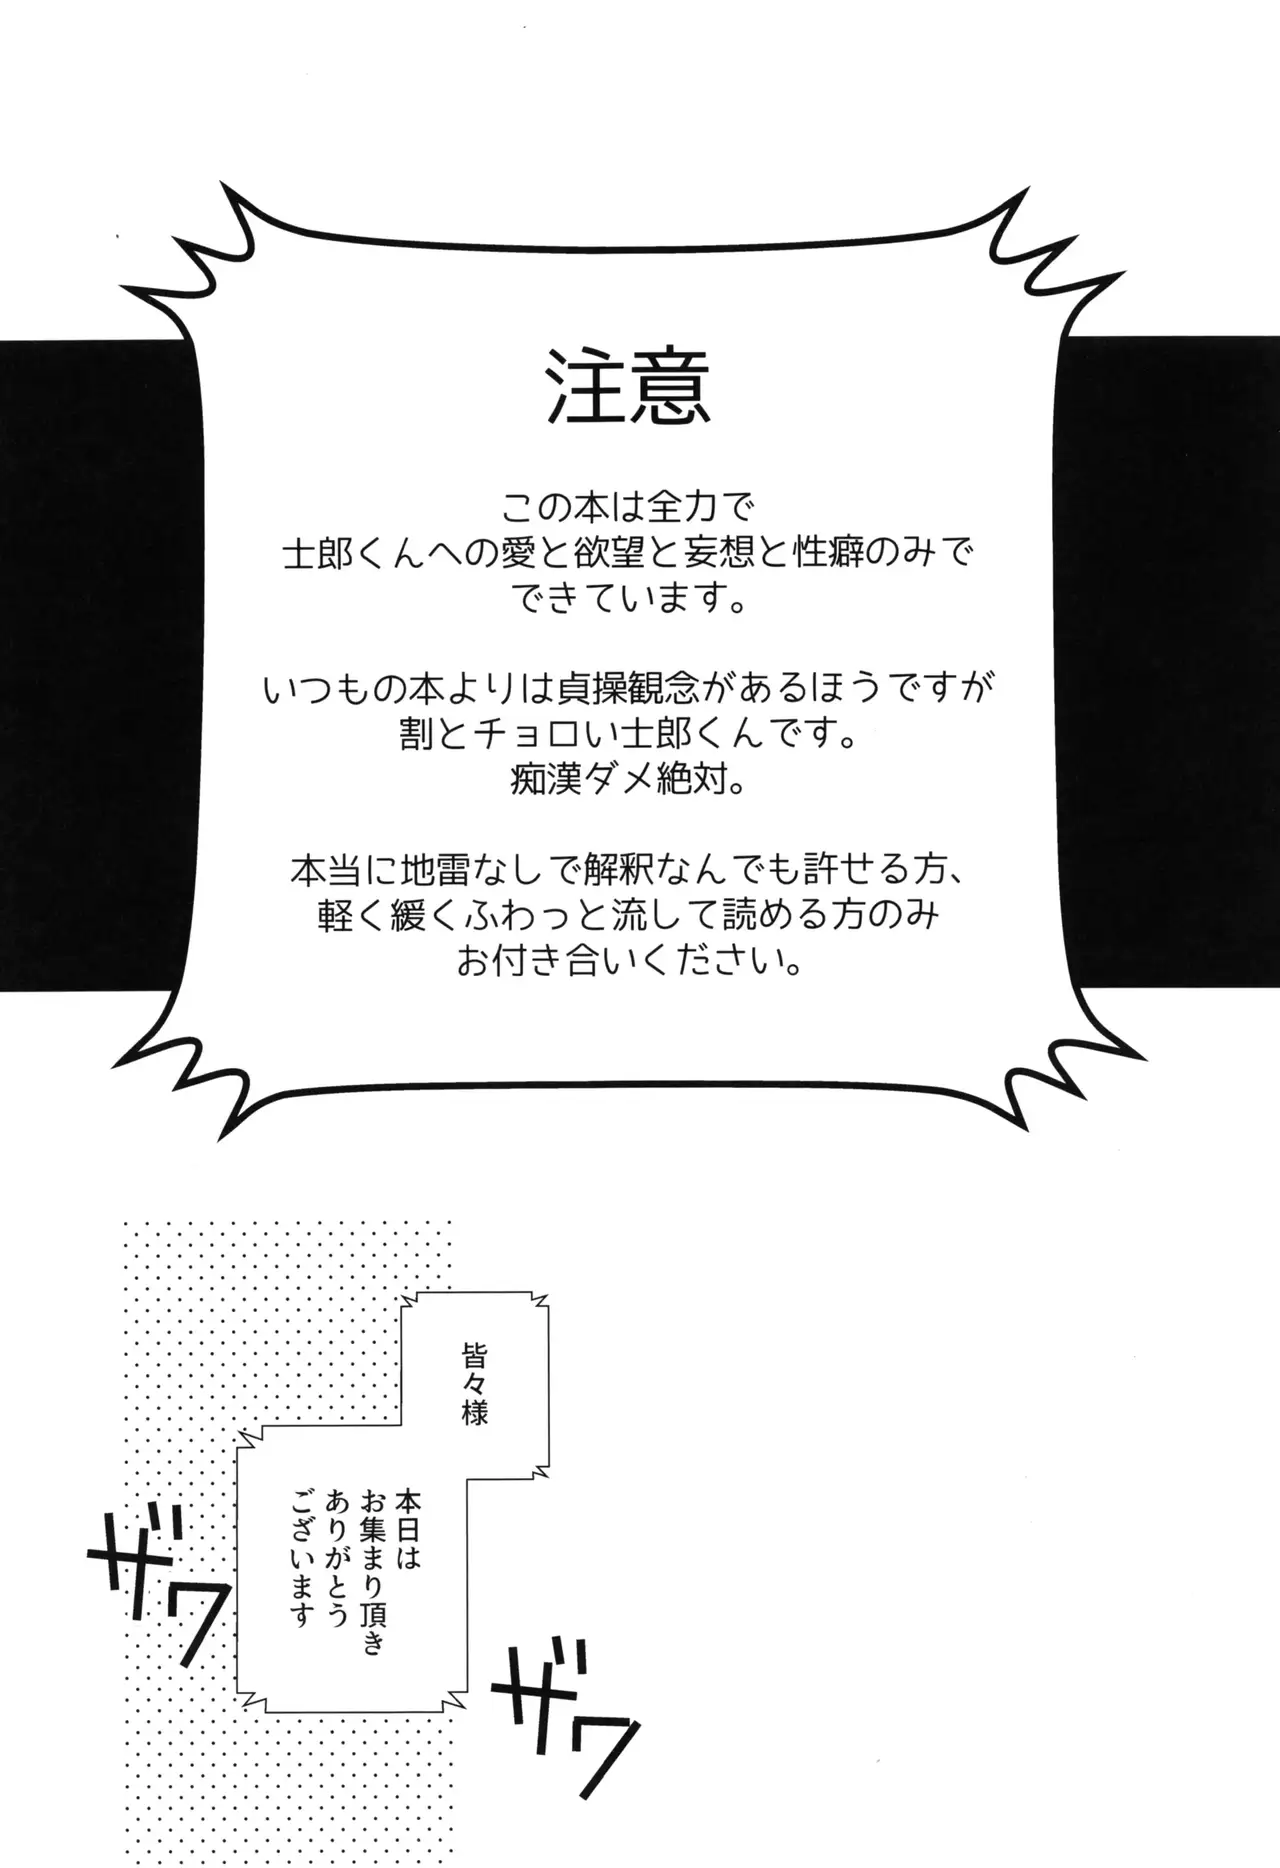 注意
この本は全力で
士郎くんへの愛と欲望と妄想と性癖のみで
できています。
いつもの本よりは貞操観念があるほうですが
割とチョロい士郎くんです。
痴漢ダメ絶対。
本当に地雷なしで解釈なんでも許せる方、
軽く緩くふわっと流して読める方のみ
お付き合いください。
皆々様
本日は
お集まり頂き
ありがとう
ございます
ザワ
ザワ